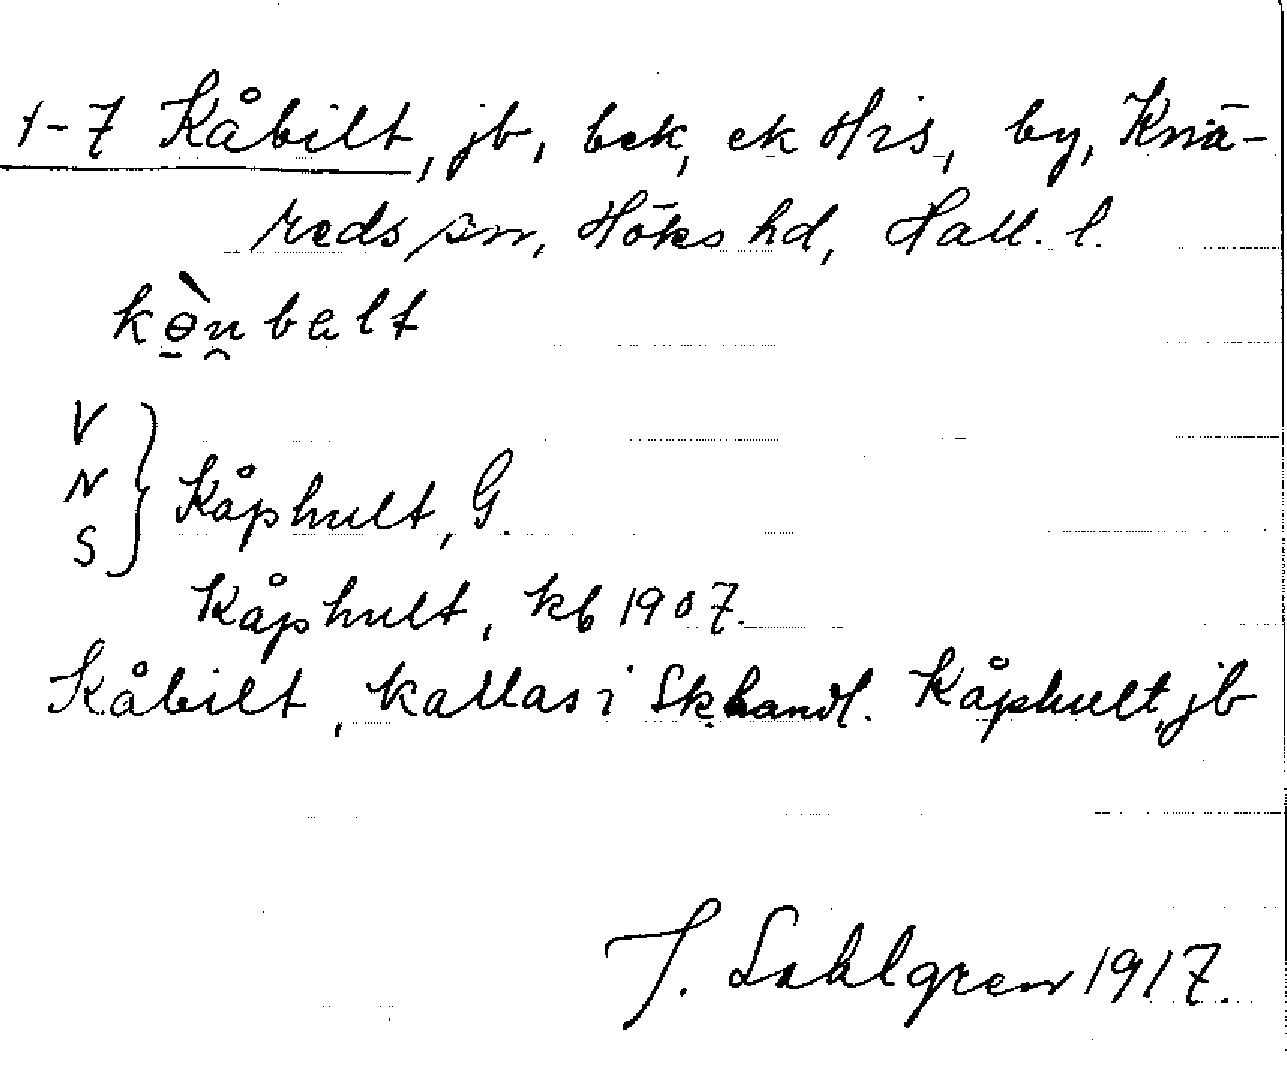 1-7 Kåbilt, jb, bek, ek His, by, Knä-
reds sn, Höks hd, Hall. l.
kɵ̠̀u̯balt
V
N
S } Kåphult, G.
Kåphult, kb 1907.
Kåbilt, kallas i Skhandl. Kåphult, jb
J. Sahlgren 1917.